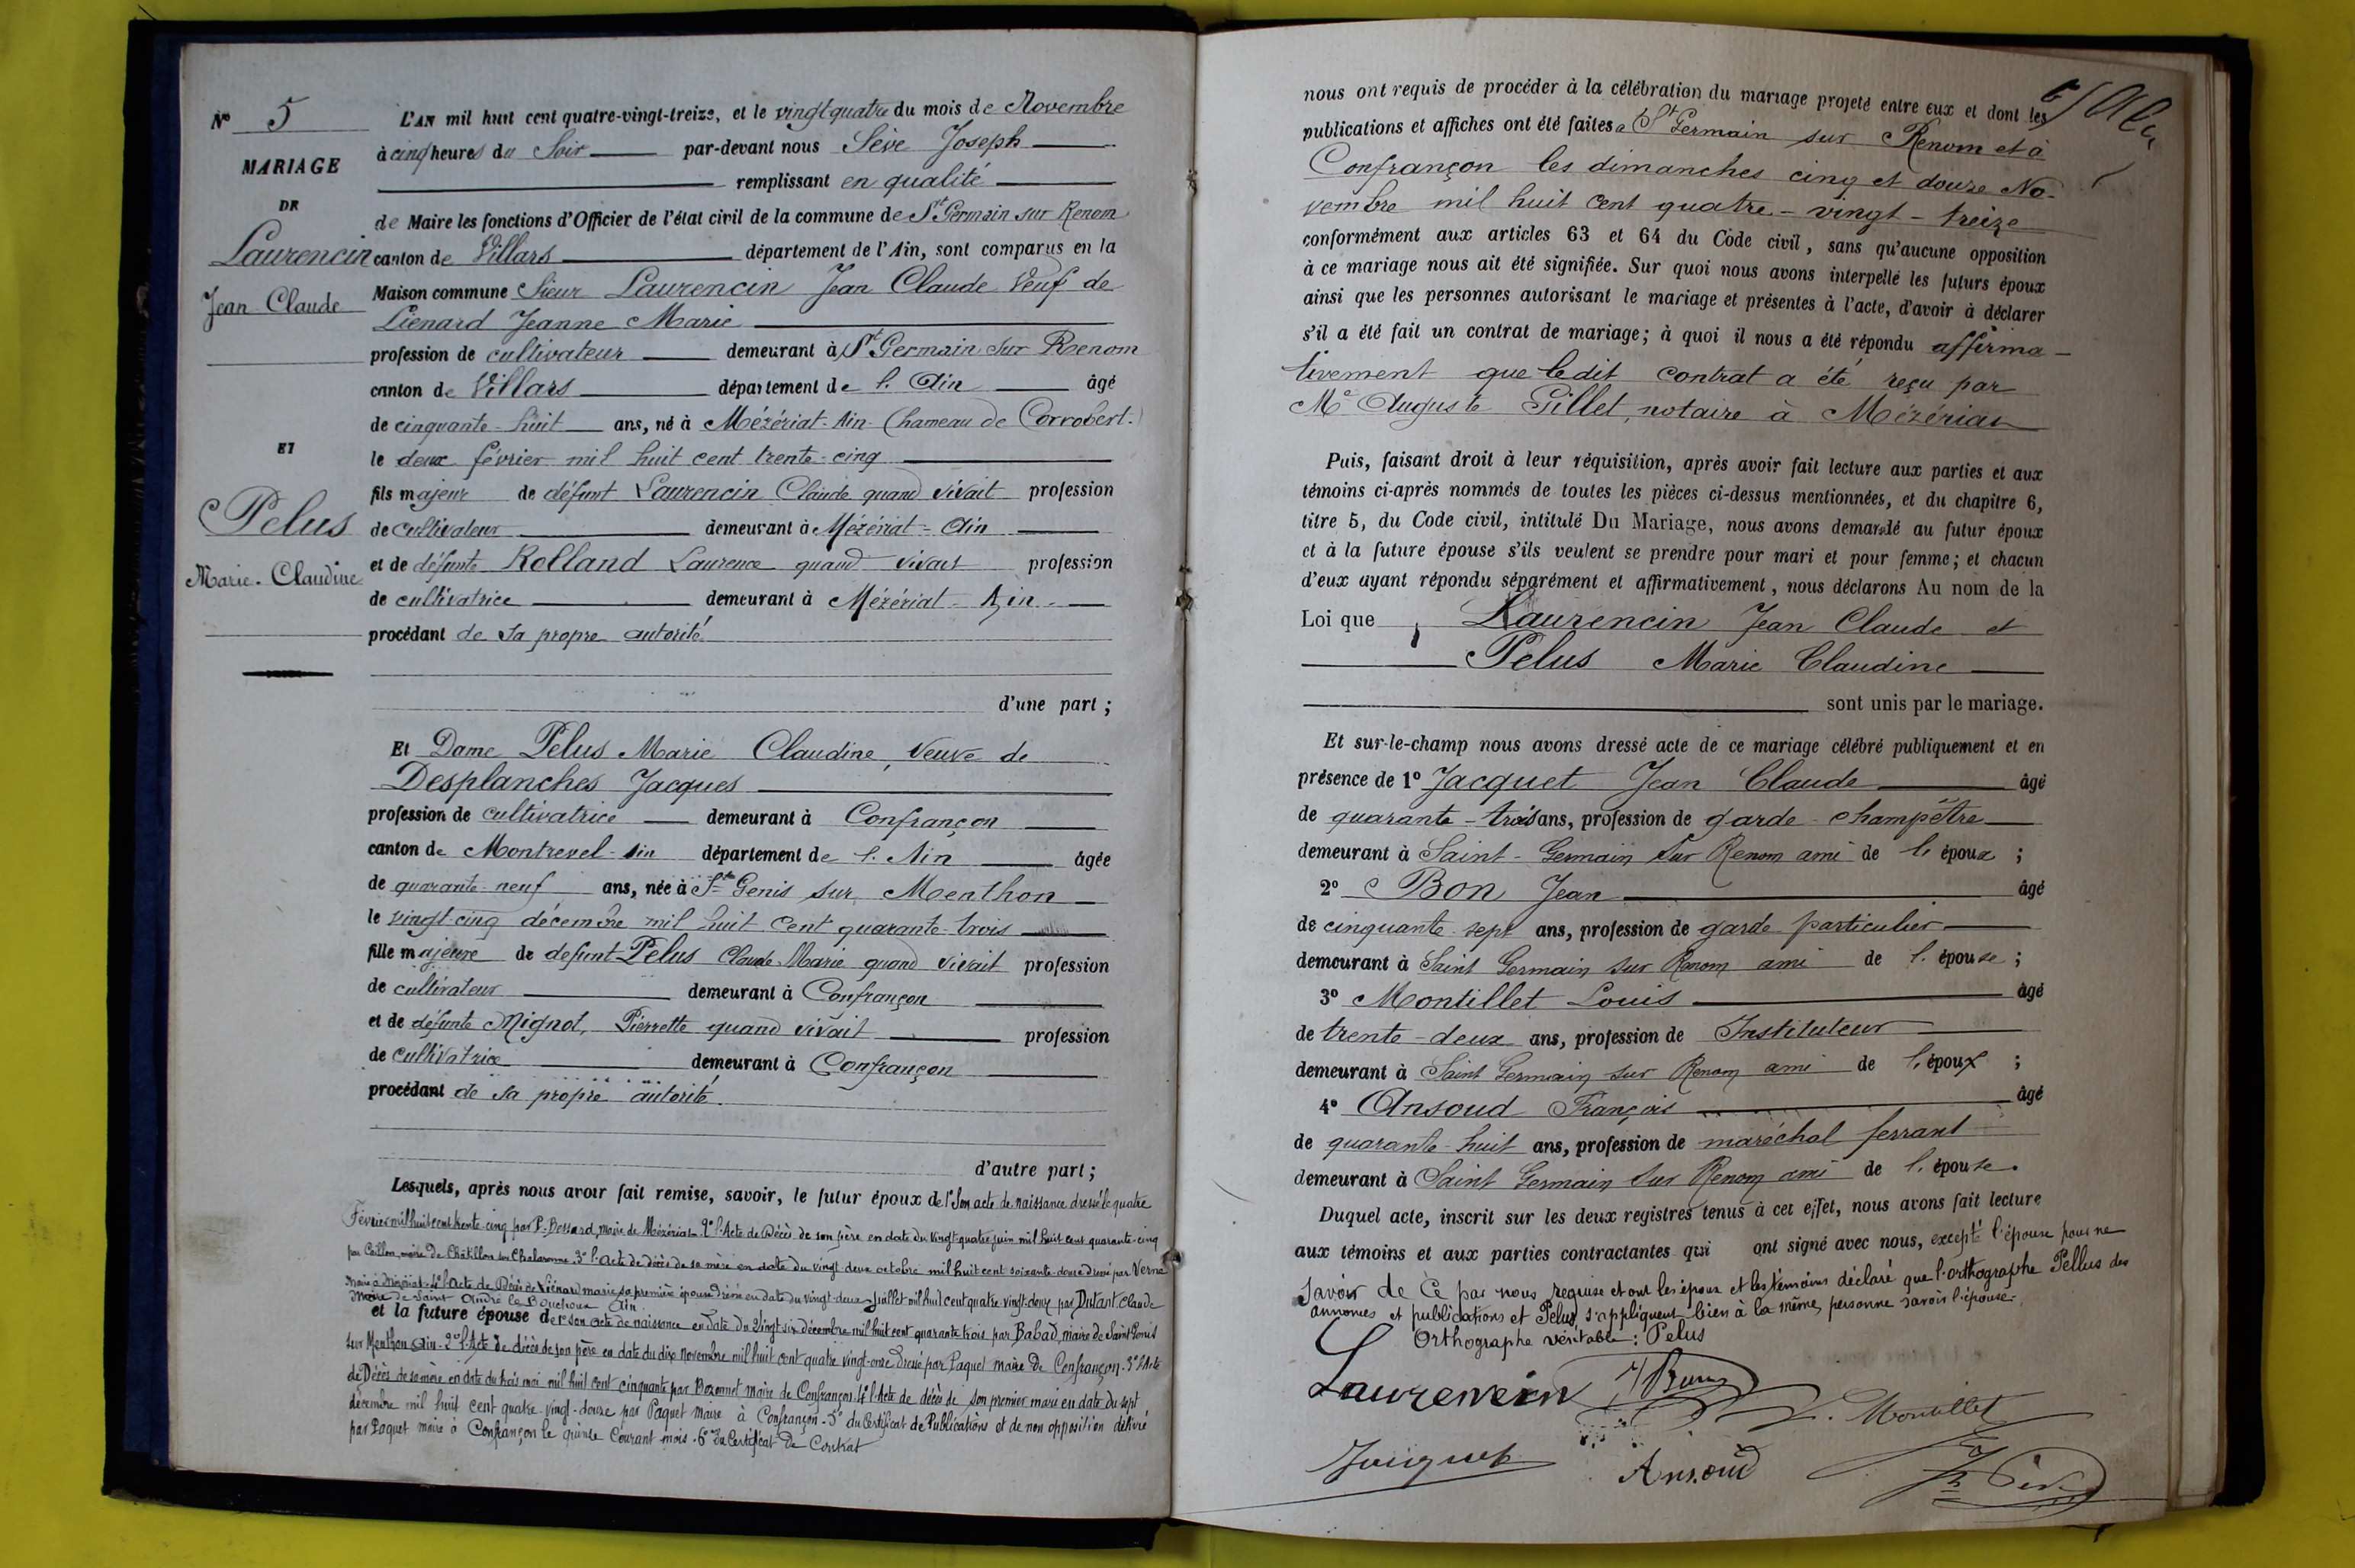 Nº 5
MARIAGE
DE
Laurencin
Jean Claude
ET
Pelus
Marie-Claudine
L'AN mil huit cent quatre-vingt-treize, et le vingt quatre du mois de Novembre
à cinq heures du Soir par-devant nous Sève Joseph
remplissant en qualité
de Maire les fonctions d'Officier de l'état civil de la commune de St Germain sur Renom
canton de Villars département de l'Ain, sont comparus en la
Maison commune Sieur Laurencin Jean Claude Veuf de
Lienard Jeanne Marie
profession de cultivateur demeurant à St Germain sur Renom
canton de Villars département de l'Ain âgé
de cinquante-huit ans, né à Mézériat-Ain-(hameau de Corrobert.)
le deux février mil huit cent trente-cinq
fils majeur de défunt Laurencin Claude quand vivait profession
de cultivateur demeurant à Mézériat-Ain
et de défunte Rolland Laurence quand vivait profession
de cultivatrice demeurant à Mézériat-Ain-
procédant de sa propre autorité.
d'une part;
Et Dame Pelus Marie Claudine, Veuve de
Desplanches Jacques
profession de cultivatrice demeurant à Confrançon
canton de Montrevel-Ain département de l'Ain âgée
de quarante-neuf ans, née à St Genis sur Menthon
le vingt-cinq décembre mil huit cent quarante-trois
fille majeure de défunt Pelus Claude Marie quand vivait profession
de cultivateur demeurant à Confrançon
et de défunte Mignot, Pierrette quand vivait profession
de cultivatrice demeurant à Confrançon
procédant de sa propre autorité.
d'autre part;
Lesquels, après nous avoir fait remise, savoir, le futur époux de 1º Son acte de naissance dressé le quatre
Février mil huit cent trente-cinq par P. Bessard, maire de Mézériat. 2º l'Acte de Décès de son père en date du vingt-quatre juin mil huit cent quarante-cinq
par maire de Châtillon sur Chalaronne 3º l'acte de décès de sa mère en date du vingt deux octobre mil huit cent soixante-douze dressé par Verne
Maire à Mézériat-4º l'Acte de Décès de Liénard marie sa première épouse dressé en date du vingt-deux Juillet mil huit cent quatre-vingt-douze par Dutant Claude
Maire de Saint André le Bouchoux Ain.
et la future épouse de 1º son acte de naissance en date du vingt six décembre mil huit cent quarante trois par Babad, maire de Saint Genis
sur Menthon Ain-2º l'Acte de décès de son père en date du dix novembre mil huit cent quatre vingt-onze dressé par Paquet maire de Confrançon. 3º l'Acte
de Décès de sa mère en date du trois mai mil huit cent cinquante par Bozonnet maire de Confrançon 4º l'Acte de décès de son premier mari en date du sept
décembre mil huit cent quatre-vingt-douze par Paquet maire à Confrançon-5º du Certificat de Publications et de non opposition délivré
par Paquet maire à Confrançon le quinze Courant mois-6º du Certificat de Contrat
nous ont requis de procéder à la célébration du mariage projeté entre eux et dont les
publications et affiches ont été faites à St Germain sur Renom et à
Confrançon les dimanches cinq et douze No-
vembre mil huit cent quatre-vingt-treize
conformément aux articles 63 et 64 du Code civil, sans qu'aucune opposition
à ce mariage nous ait été signifiée. Sur quoi nous avons interpellé les futurs époux
ainsi que les personnes autorisant le mariage et présentes à l'acte, d'avoir à déclarer
s'il a été fait un contrat de mariage; à quoi il nous a été répondu affirma-
tivement que ledit contrat a été reçu par
Me Auguste Gillet, notaire à Mézériat
Puis, faisant droit à leur réquisition, après avoir fait lecture aux parties et aux
témoins ci-après nommés de toutes les pièces ci-dessus mentionnées, et du chapitre 6,
titre 5, du Code civil, intitulé Du Mariage, nous avons demandé au futur époux
et à la future épouse s'ils veulent se prendre pour mari et pour femme; et chacun
d'eux ayant répondu séparément et affirmativement, nous déclarons Au nom de la
Loi que Laurencin Jean Claude et
Pelus Marie Claudine
sont unis par le mariage.
Et sur-le-champ nous avons dressé acte de ce mariage célébré publiquement et en
présence de 1º Jacquet Jean Claude âgé
de quarante-trois ans, profession de garde-champêtre
demeurant à Saint-Germain sur Renom ami de l'époux;
2º Bon Jean âgé
de cinquante-sept ans, profession de garde particulier
demeurant à Saint Germain sur Renom ami de l'épouse;
3º Montillet Louis âgé
de trente-deux ans, profession de Instituteur
demeurant à Saint Germain sur Renom ami de l'époux;
4º Ansoud François âgé
de quarante-huit ans, profession de maréchal ferrant
demeurant à Saint Germain sur Renom ami de l'épouse.
Duquel acte, inscrit sur les deux registres tenus à cet effet, nous avons fait lecture
aux témoins et aux parties contractantes qui ont signé avec nous, excepté l'épouse pour ne
savoir de ce par nous requise et ont les époux et les témoins déclaré que l'orthographe Pellus des
annonces et publications et Pelus, s'appliquent bien à la même personne savoir l'épouse.
Orthographe véritable: Pelus
Laurencin
Montillet
Jacquet
Ansoud